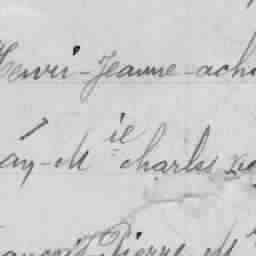 Henri-Jeanne-ach
ay-Mie Charles
ançois Pierre M